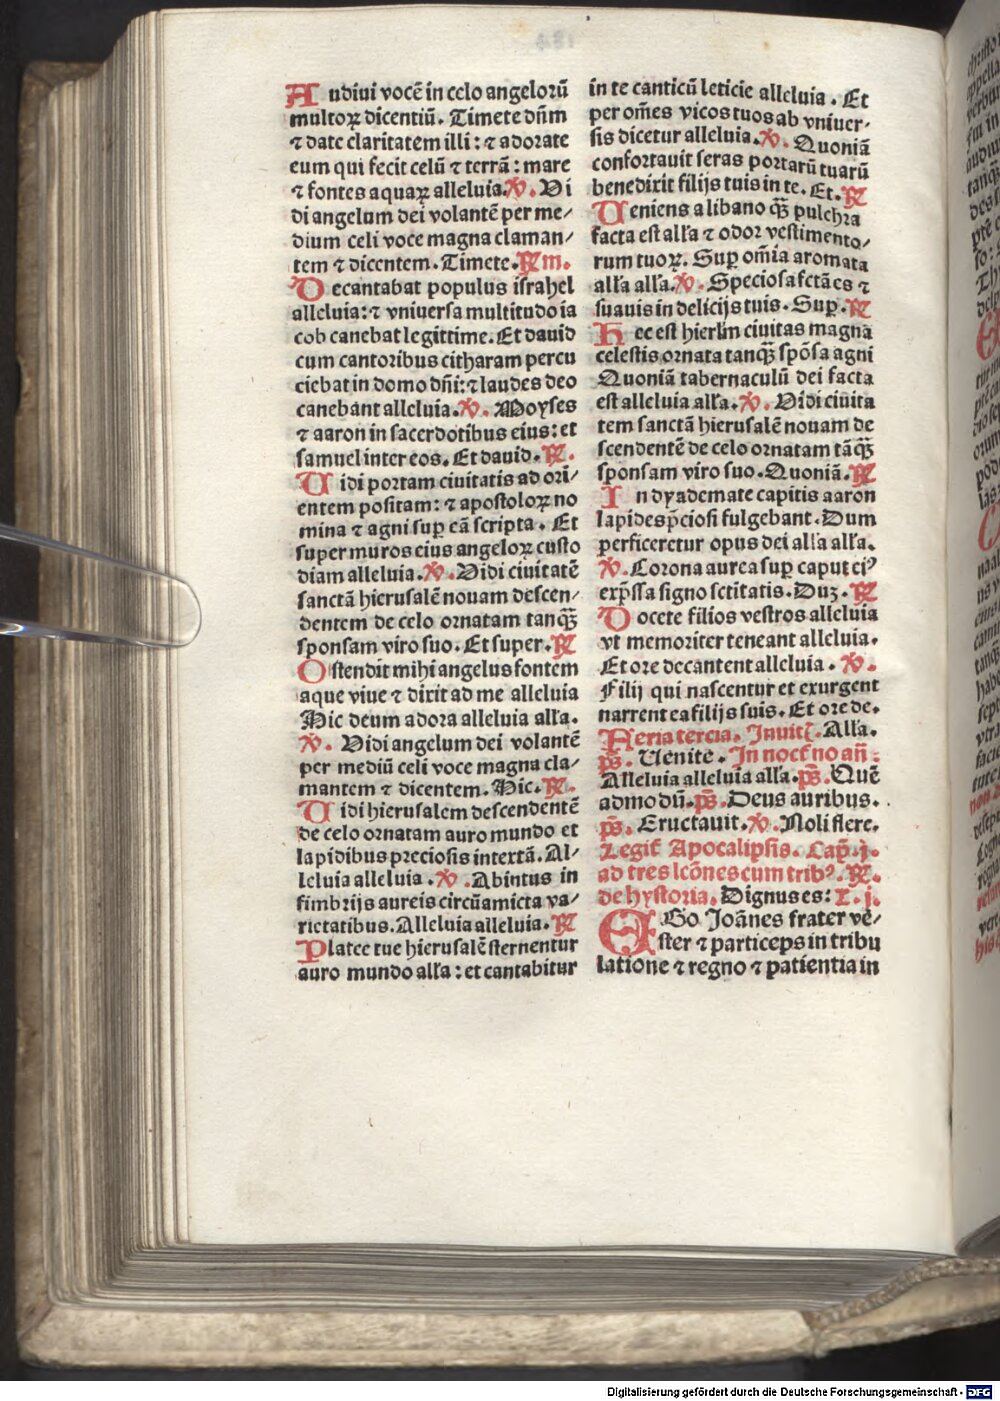 Audiui vocē in celo angelorū
multoꝝ dicentiū. Timete dn̄m
⁊ date claritatem illi: ⁊ adorate
eum qui fecit celū ⁊ terrā: mare
⁊ fontes aquaꝝ alleluia. ℣. Vi
di angelum dei volantē per me/
dium celi voce magna claman/
tem ⁊ dicentem. Timete. ℟m.
Decantabat populus israhel
alleluia: ⁊ vniuersa multitudo ia
cob canebat legittime. Et dauid
cum cantoribus citharam percu
ciebat in domo dn̄i: ⁊ laudes deo
canebant alleluia. ℣. Moyses
⁊ aaron in sacerdotibus eius: et
samuel inter eos. Et dauid. ℟.
Uidi portam ciuitatis ad ori/
entem positam: ⁊ apostoloꝝ no
mina ⁊ agni suꝑ eā scripta. Et
super muros eius angeloꝝ custo
diam alleluia. ℣. Vidi ciuitatē
sanctā hierusalē nouam descen/
dentem de celo ornatam tanqȝ̄
sponsam viro suo. Et super. ℟
Ostendit mihi angelus fontem
aque viue ⁊ dixit ad me alleluia
Hic deum adora alleluia alľa.
℣. Vidi angelum dei volantē
per mediū celi voce magna cla/
mantem ⁊ dicentem. Hic. ℟.
Uidi hierusalem descendentē
de celo ornatam auro mundo et
lapidibus preciosis intextā. Al/
leluia alleluia. ℣. Ab intus in
fimbrijs aureis circūamicta va/
rietatibus. Alleluia alleluia. ℟
Platee tue hierusalē sternentur
auro mundo alľa: et cantabitur
in te canticū leticie alleluia. Et
per om̄es vicos tuos ab vniuer/
sis dicetur alleluia. ℣. Quoniā
confortauit seras portarū tuarū
benedixit filijs tuis in te. Et. ℟
Ueniens a libano qȝ̄ pulchra
facta est alľa ⁊ odor vestimento/
rum tuoꝝ. Suꝑ om̄ia aromata
alľa alľa. ℣. Speciosa fctā es ⁊
suauis in delicijs tuis. Suꝑ. ℟
Hec est hierlm̄ ciuitas magna
celestis ornata tanqȝ̄ spōsa agni
Quoniā tabernaculū dei facta
est alleluia alľa. ℣. Vidi ciuita
tem sanctā hierusalē nouam de
scendentē de celo ornatam tāqȝ̄
sponsam viro suo. Quoniā. ℟
In dyademate capitis aaron
lapides p̄ciosi fulgebant. Dum
perficeretur opus dei alľa alľa.
℣. Corona aurea suꝑ caput eiꝰ
exp̄ssa signo sctitatis. Duȝ. ℟
Docete filios vestros alleluia
vt memoriter teneant alleluia.
Et ore decantent alleluia. ℣.
Filij qui nascentur et exurgent
narrent ea filijs suis. Et ore de.
Feria tercia. Inuiť. Alľa.
p̄s. Uenite. In nocť no an̄:
Alleluia alleluia alľa. p̄s. Quē
admodū. p̄s. Deus auribus.
p̄s. Eructauit. ℣. Noli flere.
Legiť Apocalipsis. Cap̄. j.
ad tres lcōnes cum tribꝰ. ℟.
de hystoria. Dignus es: L. j.
EGo Joānes frater ve/
ster ⁊ particeps in tribu
latione ⁊ regno ⁊ patientia in
Digitalisierung gefördert durch die Deutsche Forschungsgemeinschaft - DFG